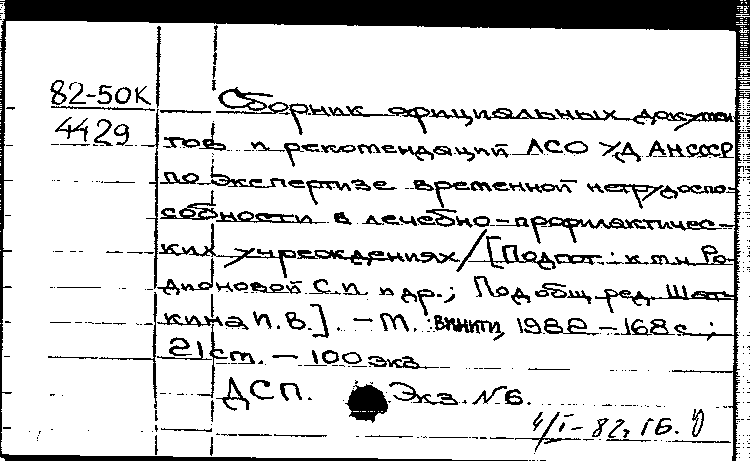 82-50К
4429
Сборник официальных докумен
тов и рекомендаций ЛСО УД АН СССР
по экспертизе временной нетрудоспо-
собности в лечебно-профилактичес-
ких учреждениях / [Подгот.: к.м.н Ро-
дионовой С.П. и др.; Под общ. ред. Шат-
кина П.В.]. - М.: ВИНИТИ, 1982 - 168 с.;
21 см. - 100 экз
ДСП. Экз. №6.
4/I-82г. ГБ.